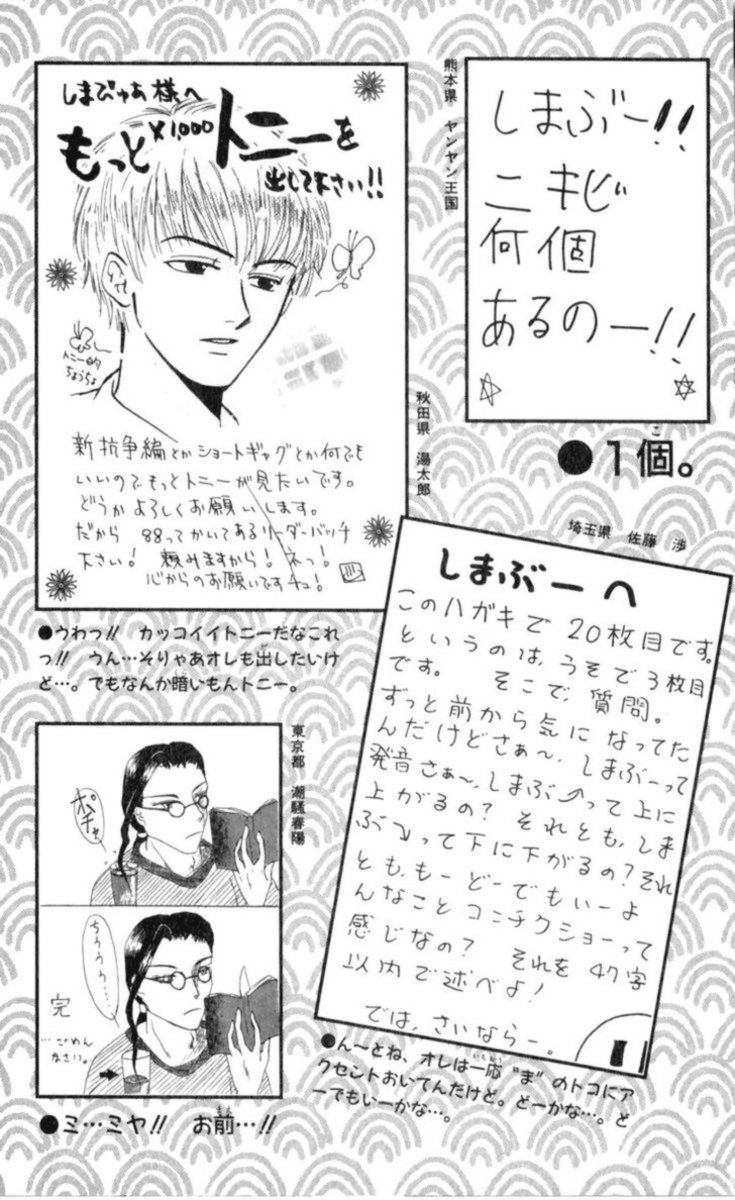 熊本県 ヤンヤン王国
しまぶー!!
ニキビ
何個
あるのー!!
●1個。
こ
秋田県 湯太郎
しまぴゅあ様へ
もっと×1,000トニーを
出して下さい!!
トニー的
ちょうちょ
新抗争編とかショートギャグとか何でも
いいのでもっとトニーが見たいです。
どうかよろしくお願いします。
だから 88ってかいてあるリーダーバッチ
下さい! 頼みますから! ネっ!
心からのお願いです チュ!
●うわっ!! カッコイイトニーだなこれ
っ!! うん…そりゃあオレも出したいけ
ど…。でもなんか暗いもんトニー。
埼玉県 佐藤 渉
しまぶーへ
このハガキで20枚目です。
というのは、うそで3枚目
です。 そこで、質問。
ずっと前から気になってた
んだけどさぁ〜、しまぶーって
発音さぁ〜、しまぶ⤴って上に
上がるの? それとも、しま
ぶ⤵って下に下がるの?それ
とも、もーどーでもいーよ
んなことコンチクショーって
感じなの? それを47字
以内で述べよ!
では、さいならー。
●ん〜とね、オレは一応“ま”のトコにア
いちおう
クセントおいてんだけど。どーかな…。ど
ーでもいーかな…。
東京都 潮騒春陽
ポチャ
ちううう…
完
…ごめん
なさい。
●ミ…ミヤ!! お前…!!
まえ